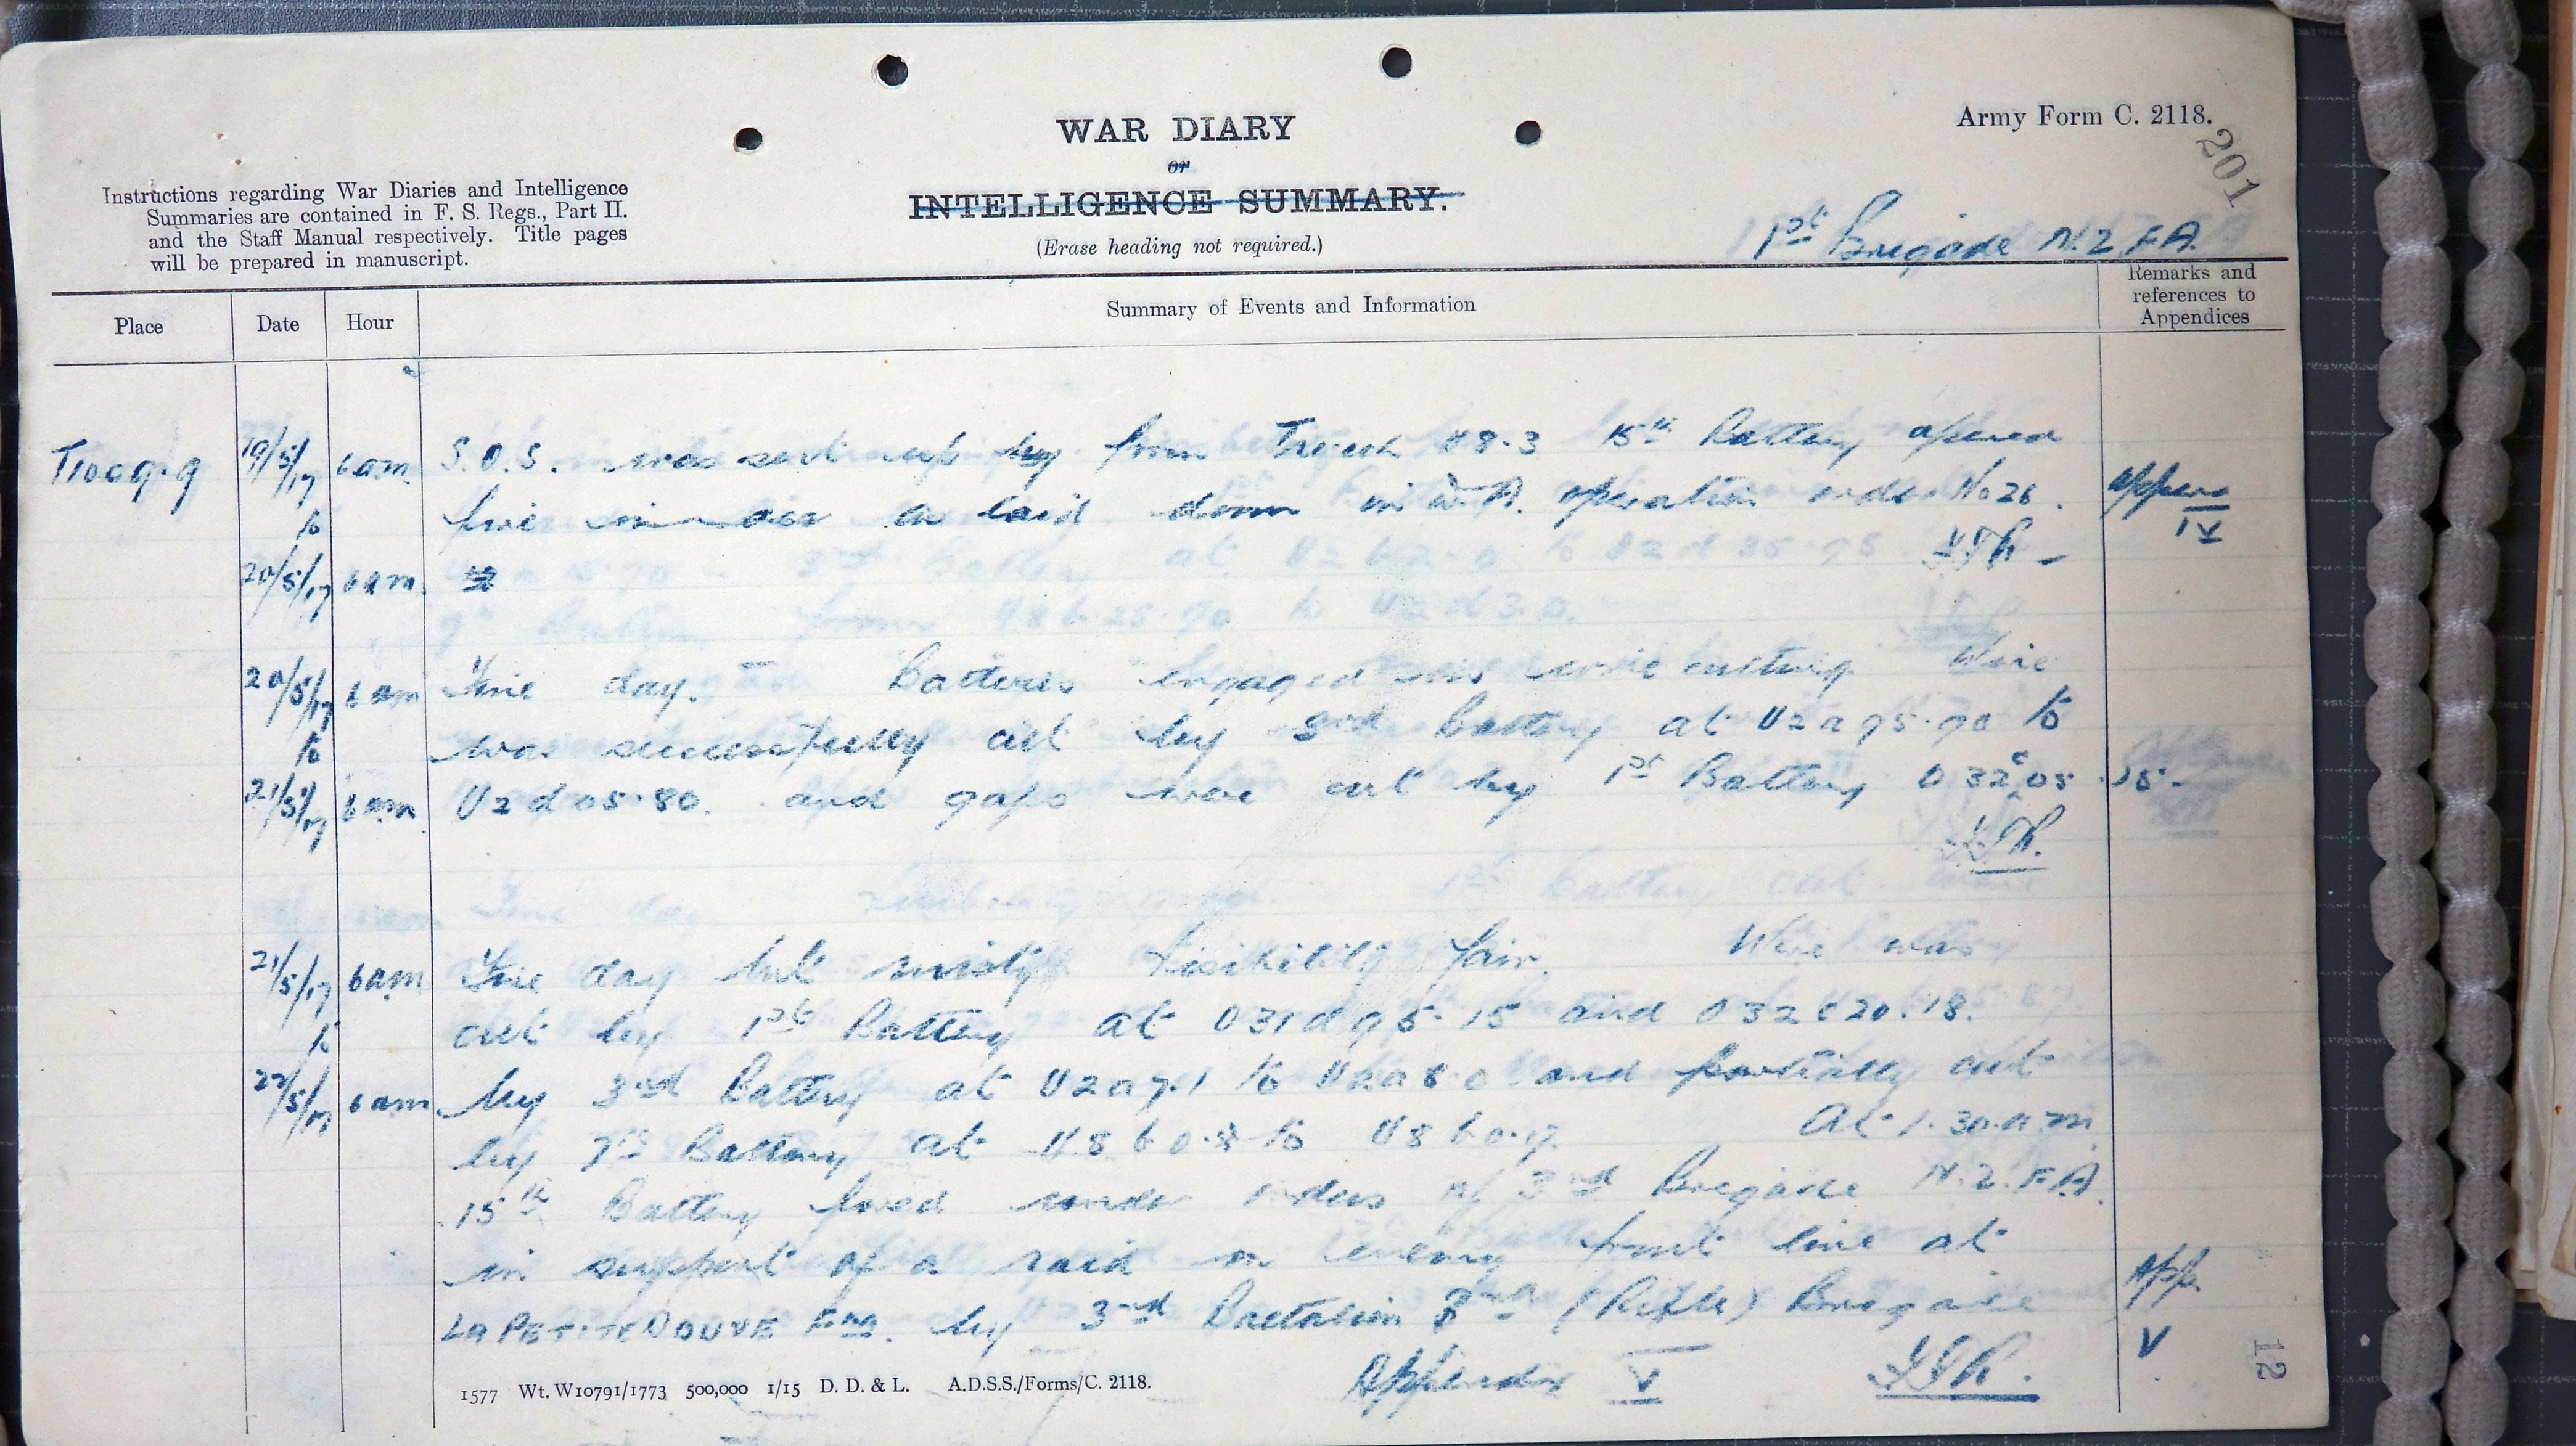 WAR DIARY
or
INTELLIGENCE SUMMARY.
(Erase heading not required.)
Army Form C. 2118.
201
Instructions regarding War Diaries and Intelligence
Summaries are contained in F. S. Regs., Part II.
and the Staff Manual respectively. Title pages
will be prepared in manuscript.
1st Brigade N.Z.F.A.
Place
Date
Hour
Summary of Events and Information
Remarks and
references to
Appendices
19/5/17 6am S.O.S. was sent up by from Trench 8.3 15th Battery opened
to fire as laid down in operation order No 26. Appen
IV
20/5/17 6am
20/5/17 6am Fine day. Batteries engaged in wire cutting. Wire
to was successfully cut by 3rd Battery at U2a95.90 to
21/5/17 6am U2d05.80. and gaps were cut by 1st Battery O32c05.15.
21/5/17 6am Fine day but misty Visibility fair. Wire was
to cut by 1st Battery at O31d95.15 and O32c20.18.
22/5/17 6am by 3rd Battery at U2a9.1 to U2a8.0 and partially cut
by 7th Battery at U8b0. to U8b0.9. At 1.30.a.m.
15th Battery fired under orders of 3rd Brigade N.Z.F.A.
in support of a raid on enemy front line at
LA PETITE DOUVE Fme. by 3rd Battalion 3rd (Rifle) Brigade App.
Appendix V V
1577 Wt. W10791/1773 500,000 1/15 D. D. & L. A.D.S.S./Forms/C. 2118.
12